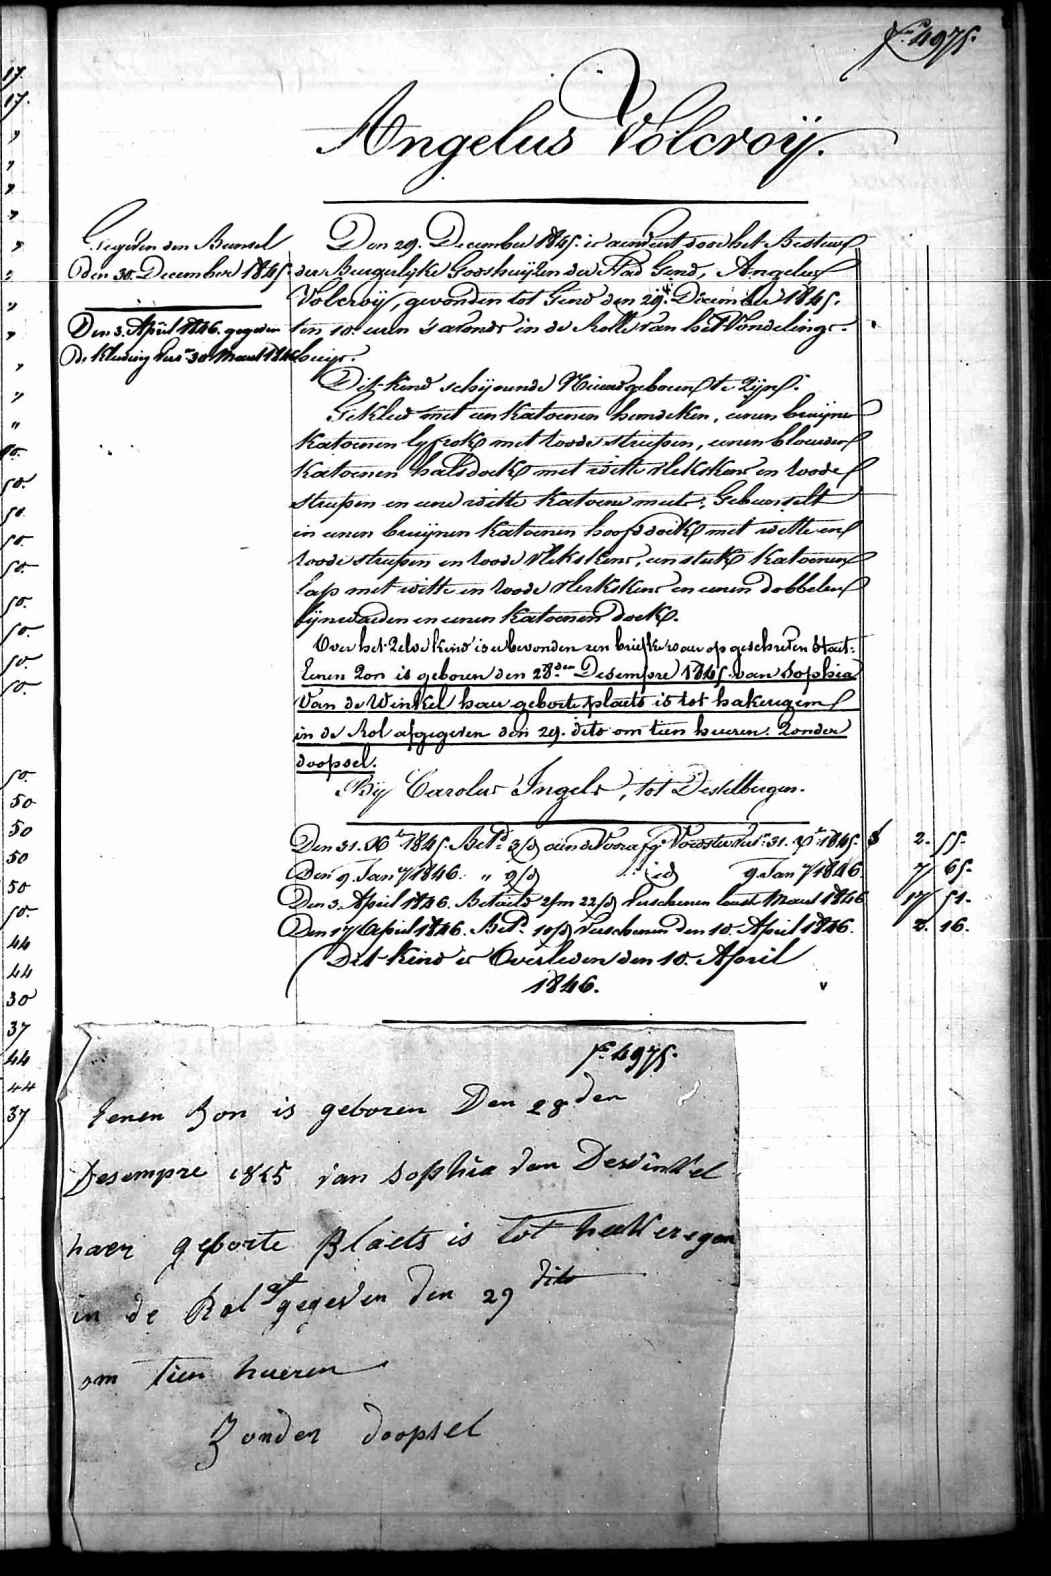 17
17.
50.
50.
50.
50.
50.
50.
50.
50.
50.
50.
50
50
50
50
50.
44
44
30
37
44
44
37
F.º 4975.
Angelus Volcroÿ.
Gegeven den Bunsel
den 30. December 1845.
Den 3. April 1846. gegeven
de Kleding vers.n 30 Maart 1846
Den 29. December 1845. is aenveert door het Bestuur
der Burgerlyke Godshuijzen der Stad Gend, Angelus
Volcroÿ, gevonden tot Gend den 29.n December 1845.
ten 10. uren s'avonds in de Rolle van het Vondelings-
huijs.
Dit kind schijnende Nieuwgeboren te zijn.
Gekleed met een katoenen hemdeken, eenen bruijnen
katoenen lyfrok met roode streepen, eenen blauwen
katoenen halsdoek met witte vlekskens en roode
streepen en eene witte katoene muts; Gebunselt
in eenen bruijnen katoenen hoofddoek met witte en
roode streepen en roode vlekskens, een stuk katoenen
lap met witte en roode vlekskens en eenen dobbelen
lijnwaeden en eenen katoenen doek.
Over het zelve kind is er bevonden een briefke waer op geschreven staet:
Eenen Zon is geboren den 28.den Desempre 1845. van Sophia
Van de Winkel haer geborte plaets is tot hakeregem
in de Rol afgegeven den 29. dito om tien hueren. Zonder
doopsel.
Bij Carolus Ingels, tot Destelbergen.
Den 31. Xb.r 1845. Bet.d 3/d aen de Voorafg.e Voedster vers. 31. Xb.r 1845. 2. 55.
Den 9. Jan.y 1846. " 9/d id 9 Jan.y 1846. 7 65.
Den 3. April 1846. Betaeld 2/m 22/d Verschenen laest Maart 1846 17 51.
Den 17 April 1846. Bet.d 10/d Verschenen den 10. April 1846. 2. 16.
Dit Kind is Overleden den 10. April
1846.
F.º 4975.
Eenen Zon is geboren Den 28den
Desempre 1845 van Sophia van DeWinkel
haer geborte Plaets is tot hakeregem
in de Rol af gegeven den 29 dito
om tien hueren
Zonder doopsel